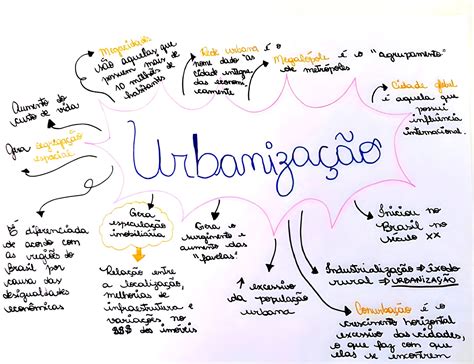 Megacidades
são aquelas que
possuem mais de
10 milhões de
habitantes
Rede urbana é o
nome dado às
cidades integra
das econom
icamente
Megalópole é o "agrupamento"
de metrópoles
Cidade global
é aquela que
possui
influência
internacional
Aumento do
custo de vida
Gera segregação
espacial
Urbanização
É diferenciada
de acordo com
as regiões do
Brasil por
causa das
desigualdades
econômicas
Gera
especulação
imobiliária
Relação entre
a localização,
melhorias de
infraestrutura e
variações no
$$$ dos imóveis
Gera o
surgimento e
aumento das
"favelas"
↑ excessivo
da população
urbana
Iniciou no
Brasil no
século XX
Industrialização → êxodo
rural → URBANIZAÇÃO
Conurbação é o
crescimento horizontal
excessivo das cidades,
o que faz com que
elas se encontrem